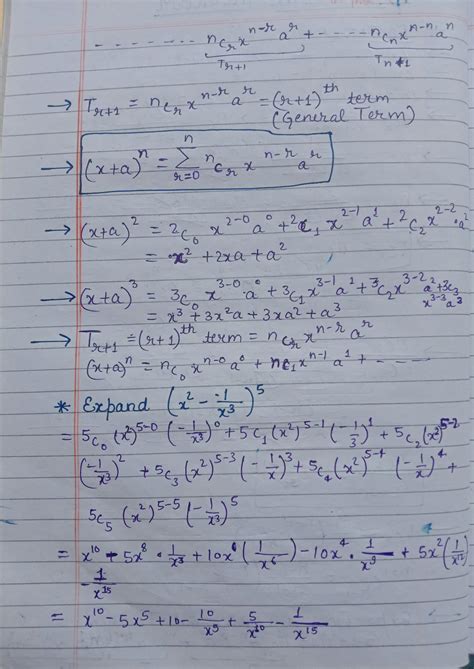 - - - - - - - nCr x^{n-r} a^r + - - - - nCn x^{n-n} a^n
T_{r+1} T_{n+1}
→ T_{r+1} = nCr x^{n-r} a^r = (r+1)^{th} term
(General Term)
→ (x+a)^n = Σ_{r=0}^{n} nCr x^{n-r} a^r
→ (x+a)^2 = 2C0 x^{2-0} a^0 + 2C1 x^{2-1} a^1 + 2C2 x^{2-2} · a^2
= x^2 + 2xa + a^2
→ (x+a)^3 = 3C0 x^{3-0} a^0 + 3C1 x^{3-1} a^1 + 3C2 x^{3-2} a^2 + 3C3
x^{3-3} a^3
= x^3 + 3x^2a + 3xa^2 + a^3
→ T_{r+1} = (r+1)^{th} term = nCr x^{n-r} a^r
(x+a)^n = nC0 x^{n-0} a^0 + nC1 x^{n-1} a^1 + - - - -
* Expand (x^2 - 1/x^3)^5
= 5C0 (x^2)^{5-0} (-1/x^3)^0 + 5C1 (x^2)^{5-1} (-1/3)^1 + 5C2 (x^2)^{5-2}
(-1/x^3)^2 + 5C3 (x^2)^{5-3} (-1/x)^3 + 5C4 (x^2)^{5-4} (-1/x)^4 +
5C5 (x^2)^{5-5} (-1/x^3)^5
= x^{10} - 5x^8 · 1/x^3 + 10x^6 (1/x^6) - 10x^4 · 1/x^9 + 5x^2 (1/x^{12})
- 1/x^{15}
= x^{10} - 5x^5 + 10 - 10/x^5 + 5/x^{10} - 1/x^{15}